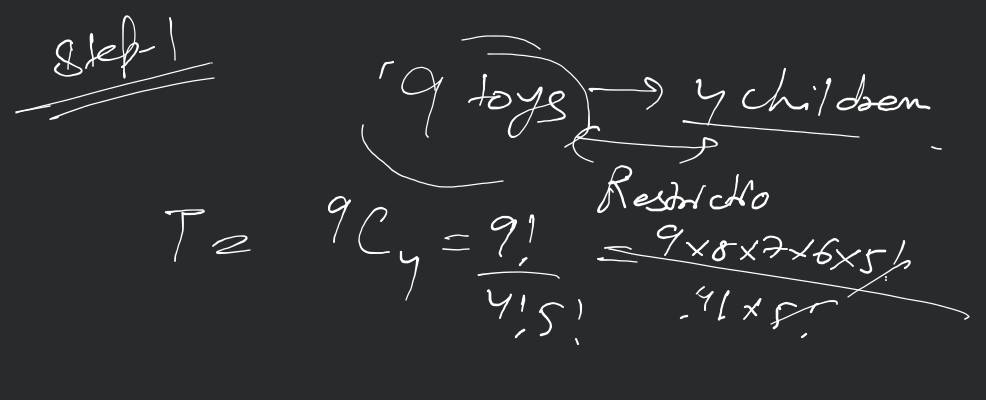 Step-1
9 toys → 4 children
Restrictio
T = 9C4 = 9! / 4!5! = 9×8×7×6×5! / 4!×5!